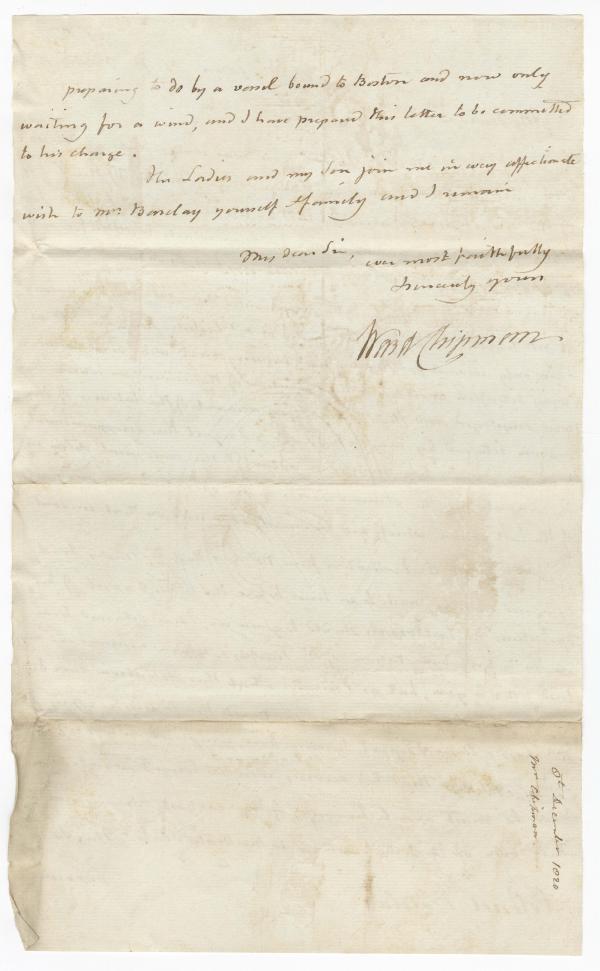 preparing to do by a vessel bound to Boston and now only
waiting for a wind, and I have prepared this letter to be committed
to his charge.
The Ladies and my Son join me in every affectionate
wish to Mrs. Barclay yourself & family and I remain
My dear Sir, ever most faithfully
& sincerely yours
Ward Chipman
8th December 1820
Mr. Chipman